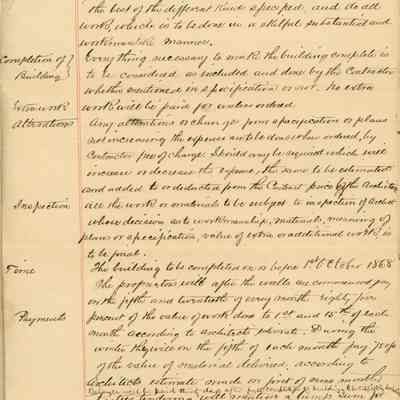 the best of the different kinds specified, and do all
work, which is to be done in a skilful substantial and
workmanlike manner.
Completion of Building } Everything necessary to make the building complete is
to be considered as included and done by the Contractor
whether mentioned in specification or not. No extra
Extra work work will be paid for unless ordered.
Alterations Any alterations or change from specification or plans
not increasing the expense are to be done when ordered, by
Contractor free of charge. Should any be required which will
increase or decrease the expense, the same to be estimated
and added to or deducted from the Contract price by the Architect
Inspection All the work or materials to be subject to inspection of Architect
whose decision as to workmanship, materials, meaning of
plans or specification, value of extra or additional work is
to be final.
Time The building to be completed on or before 1st October 1868
The proprietors will after the walls are commenced pay
on the fifth and twentieth of every month Eighty five
Payments percent of the value of work done to 1st and 15th of each
month according to architects estimate. During the
winter they will on the fifth of each month pay 75 %
of the value of material delivered, according to
Architects estimate made on first of same month
will mention a lump sum for